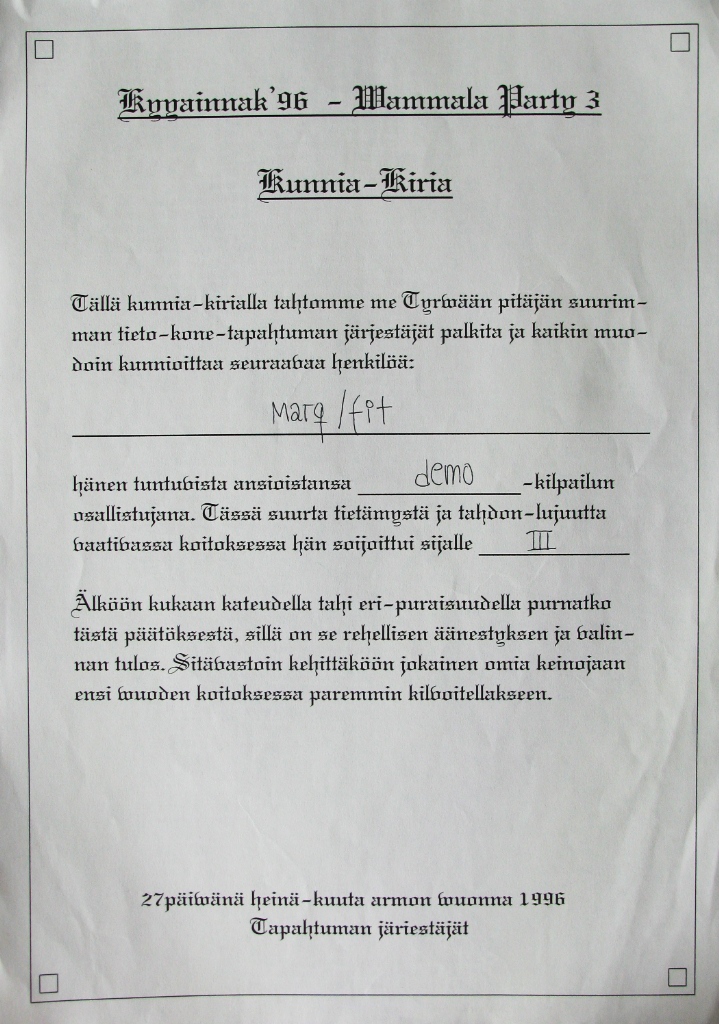 Kyyainnak'96 - Wammala Party 3
Kunnia-Kiria
Tällä kunnia-kirialla tahtomme me Tyrwään pitäjän suurim-
man tieto-kone-tapahtuman järjestäjät palkita ja kaikin muo-
doin kunnioittaa seuraavaa henkilöä:
Marq /fit
hänen tuntuvista ansioistansa demo -kilpailun
osallistujana. Tässä suurta tietämystä ja tahdon-lujuutta
vaativassa koitoksessa hän soijoittui sijalle III
Älköön kukaan kateudella tahi eri-puraisuudella purnatko
tästä päätöksestä, sillä on se rehellisen äänestyksen ja valin-
nan tulos. Sitävastoin kehittäköön jokainen omia keinojaan
ensi wuoden koitoksessa paremmin kilvoitellakseen.
27päiwänä heinä-kuuta armon wuonna 1996
Tapahtuman järiestäjät